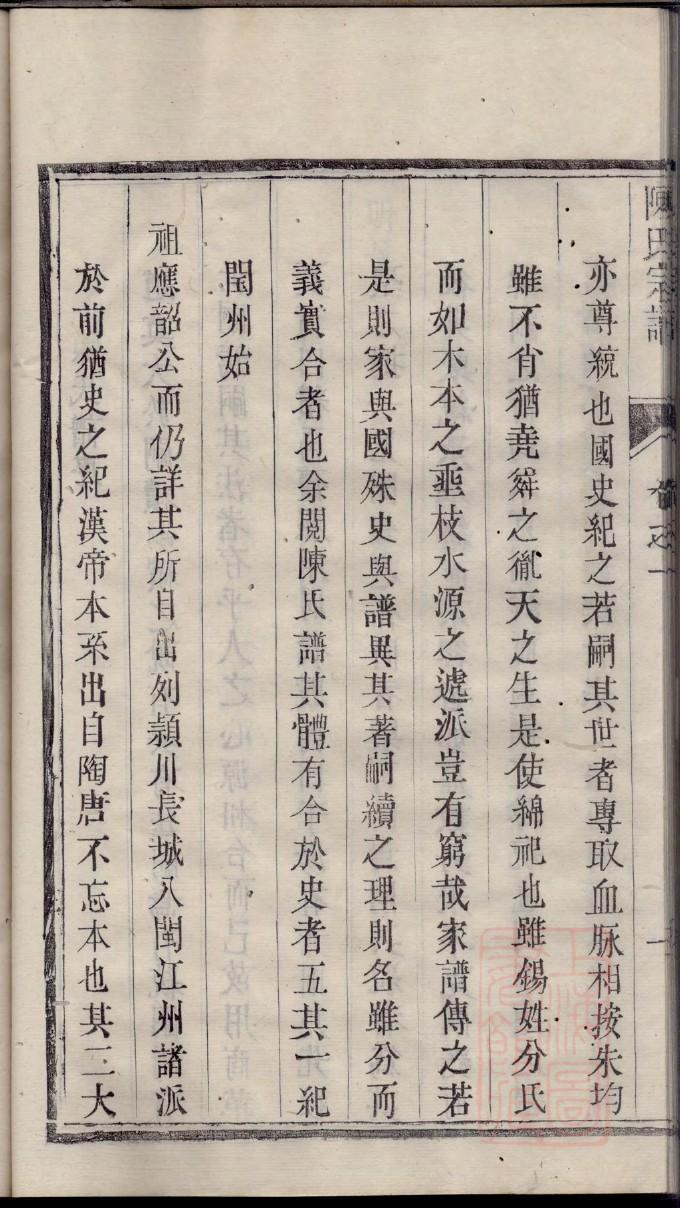 陳氏宗譜
卷之一
一
亦尊統也國史紀之若嗣其世者專取血脉相按朱均
雖不肖猶堯舜之胤天之生是使綿祀也雖錫姓分氏
而如木本之垂枝水源之遞派豈有窮哉家譜傳之若
是則家與國殊史與譜異其著嗣續之理則名雖分而
義實合者也余閱陳氏譜其體有合於史者五其一紀
閩州始
祖應韶公而仍詳其所自出列頴川長城入閩江州諸派
於前猶史之紀漢帝本系出自陶唐不忘本也其二大